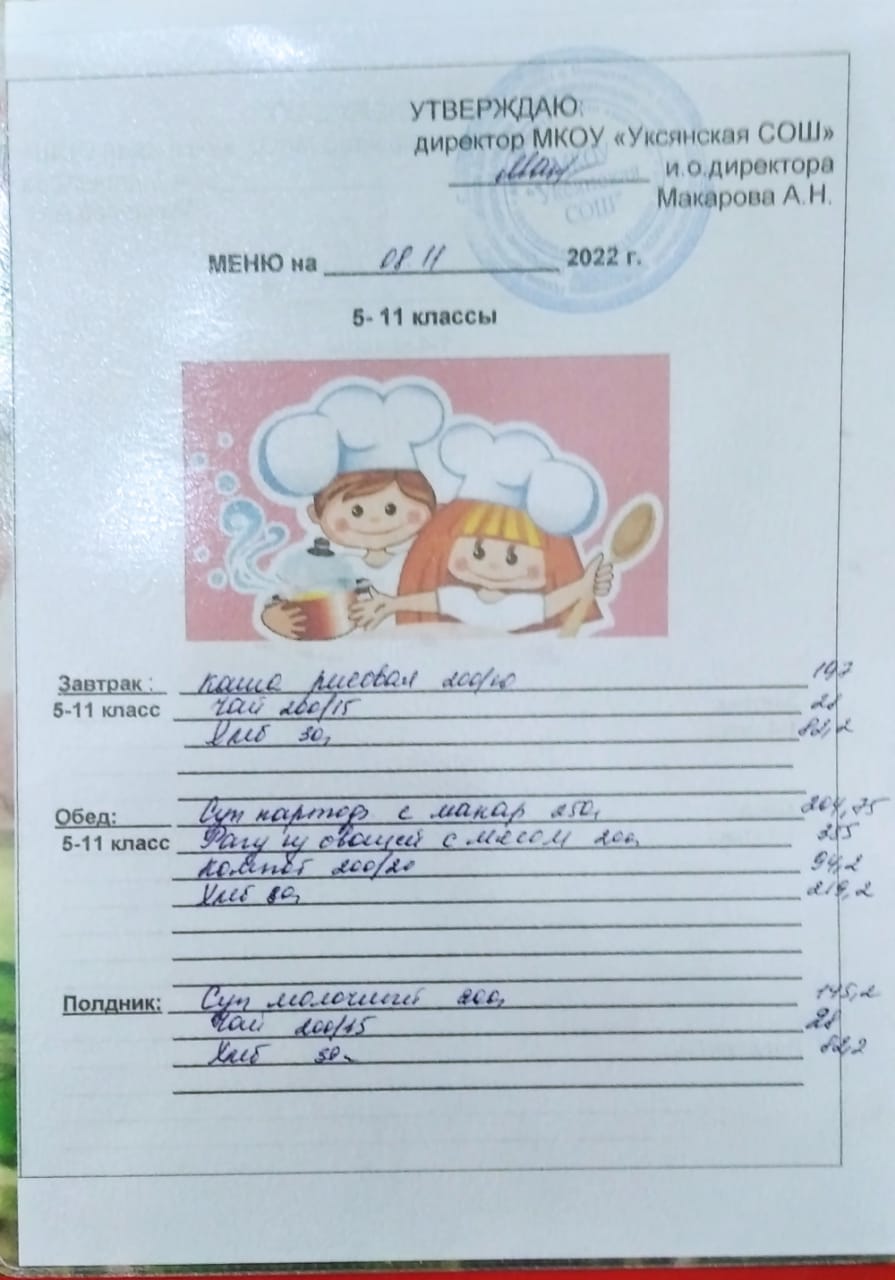 УТВЕРЖДАЮ:
директор МКОУ «Уксянская СОШ»
и.о.директора
"Уксянская
СОШ"
Макарова А.Н.
МЕНЮ на 08.11 2022 г.
5- 11 классы
Завтрак : каша рисовая 200/10 197
5-11 класс чай 200/15 28
Хлеб 30г 82,2
Обед: Суп картоф с макар 250г 204,75
5-11 класс Рагу из овощей с мясом 200г 255
компот 200/20 94,2
Хлеб 80г 219,2
Полдник: Суп молочный 200г 145,2
Чай 200/15 28
Хлеб 30г 82,2